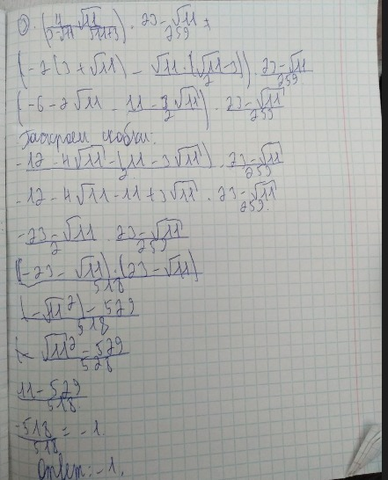 (4/(3-√11) - √11/(√11+3)) · (23-√11)/259 =
(-2(3+√11) - (√11·(√11-3))/2) · (23-√11)/259
(-6-2√11 - (11-3√11)/2) · (23-√11)/259
Раскроем скобки:
(-12-4√11-(11-3√11))/2 · (23-√11)/259
-12-4√11-11+3√11 · (23-√11)/259
(-23-√11)/2 · (23-√11)/259
((-23-√11)·(23-√11))/518
(-√11²)-529/518
(-√11²-529)/528
(11-529)/518
-518/518 = -1
Ответ: -1.